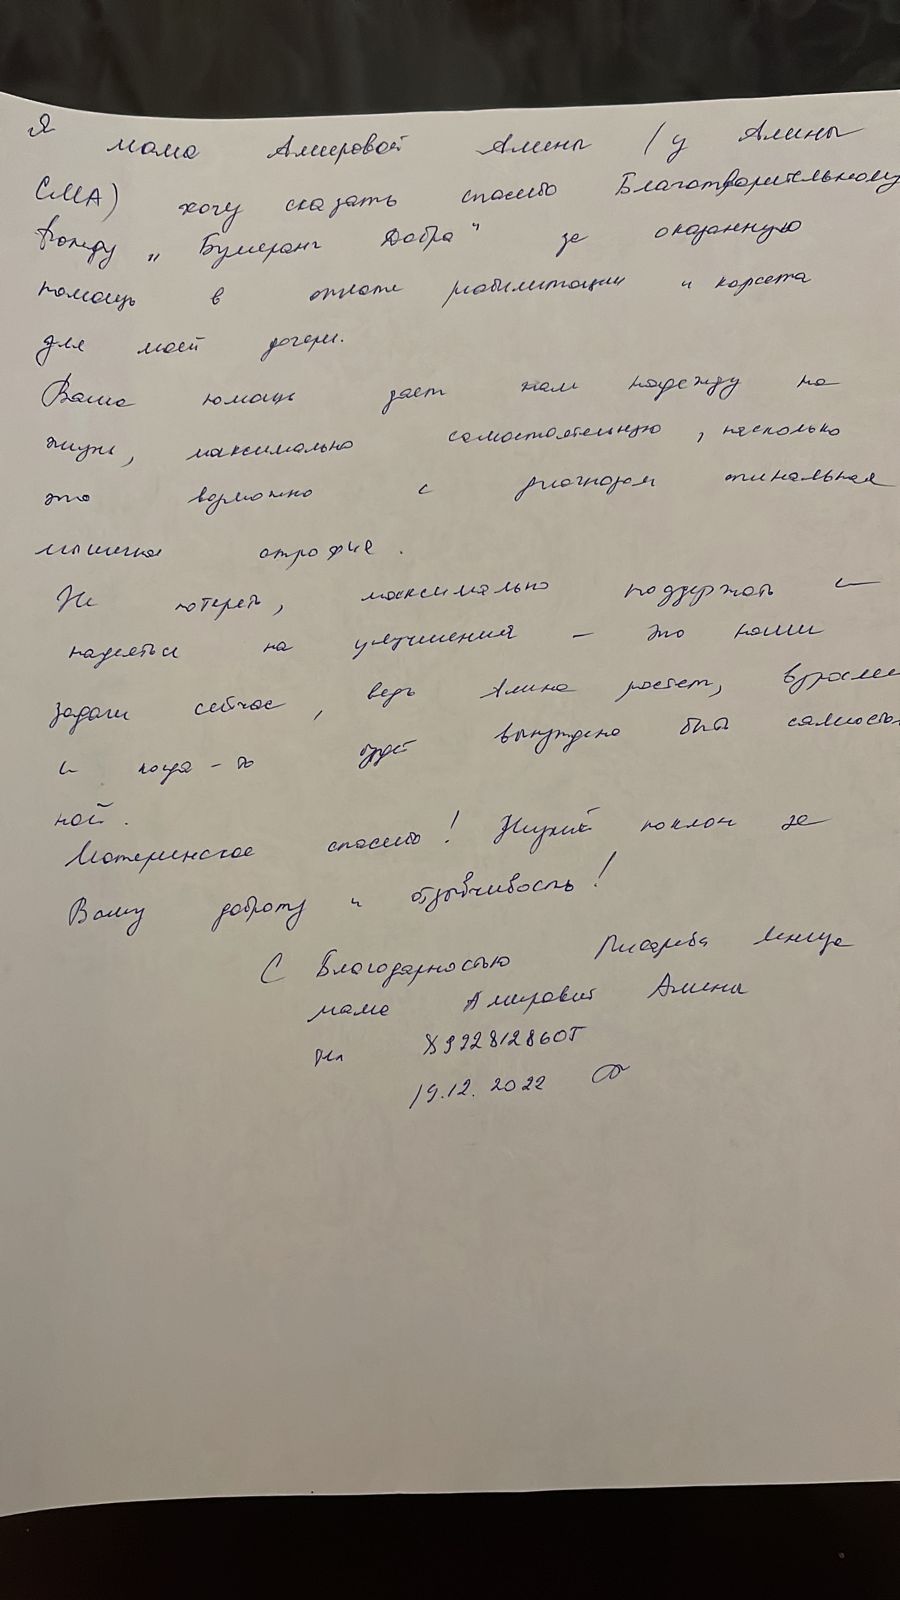 Я мама Амировой Амины (у Амины
СМА) хочу сказать спасибо Благотворительному
Фонду „Бумеранг Добра" за оказанную
помощь в оплате реабилитации и корсета
для моей дочери.
Ваша помощь дает нам надежду на
жизнь, максимально самостоятельную, насколько
это возможно с диагнозом спинальная
мышечная атрофия.
Не потерять, максимально поддержать и
надеяться на улучшения – это наши
задачи сейчас, ведь Амина растет, взрослеет
и когда-то будет вынуждена быть самостоятель
ной.
Материнское спасибо! Низкий поклон за
Вашу доброту и отзывчивость!
С Благодарностью Писарева
мама Амировой Амины
19.12.2022